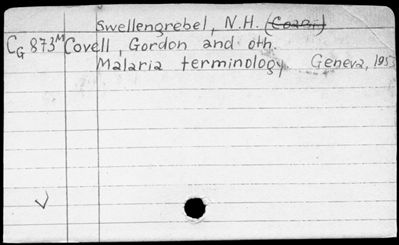 Swellengrebel, N.H.
CG 873M Covell, Gordon and oth.
Malaria terminology. Geneva, 1953